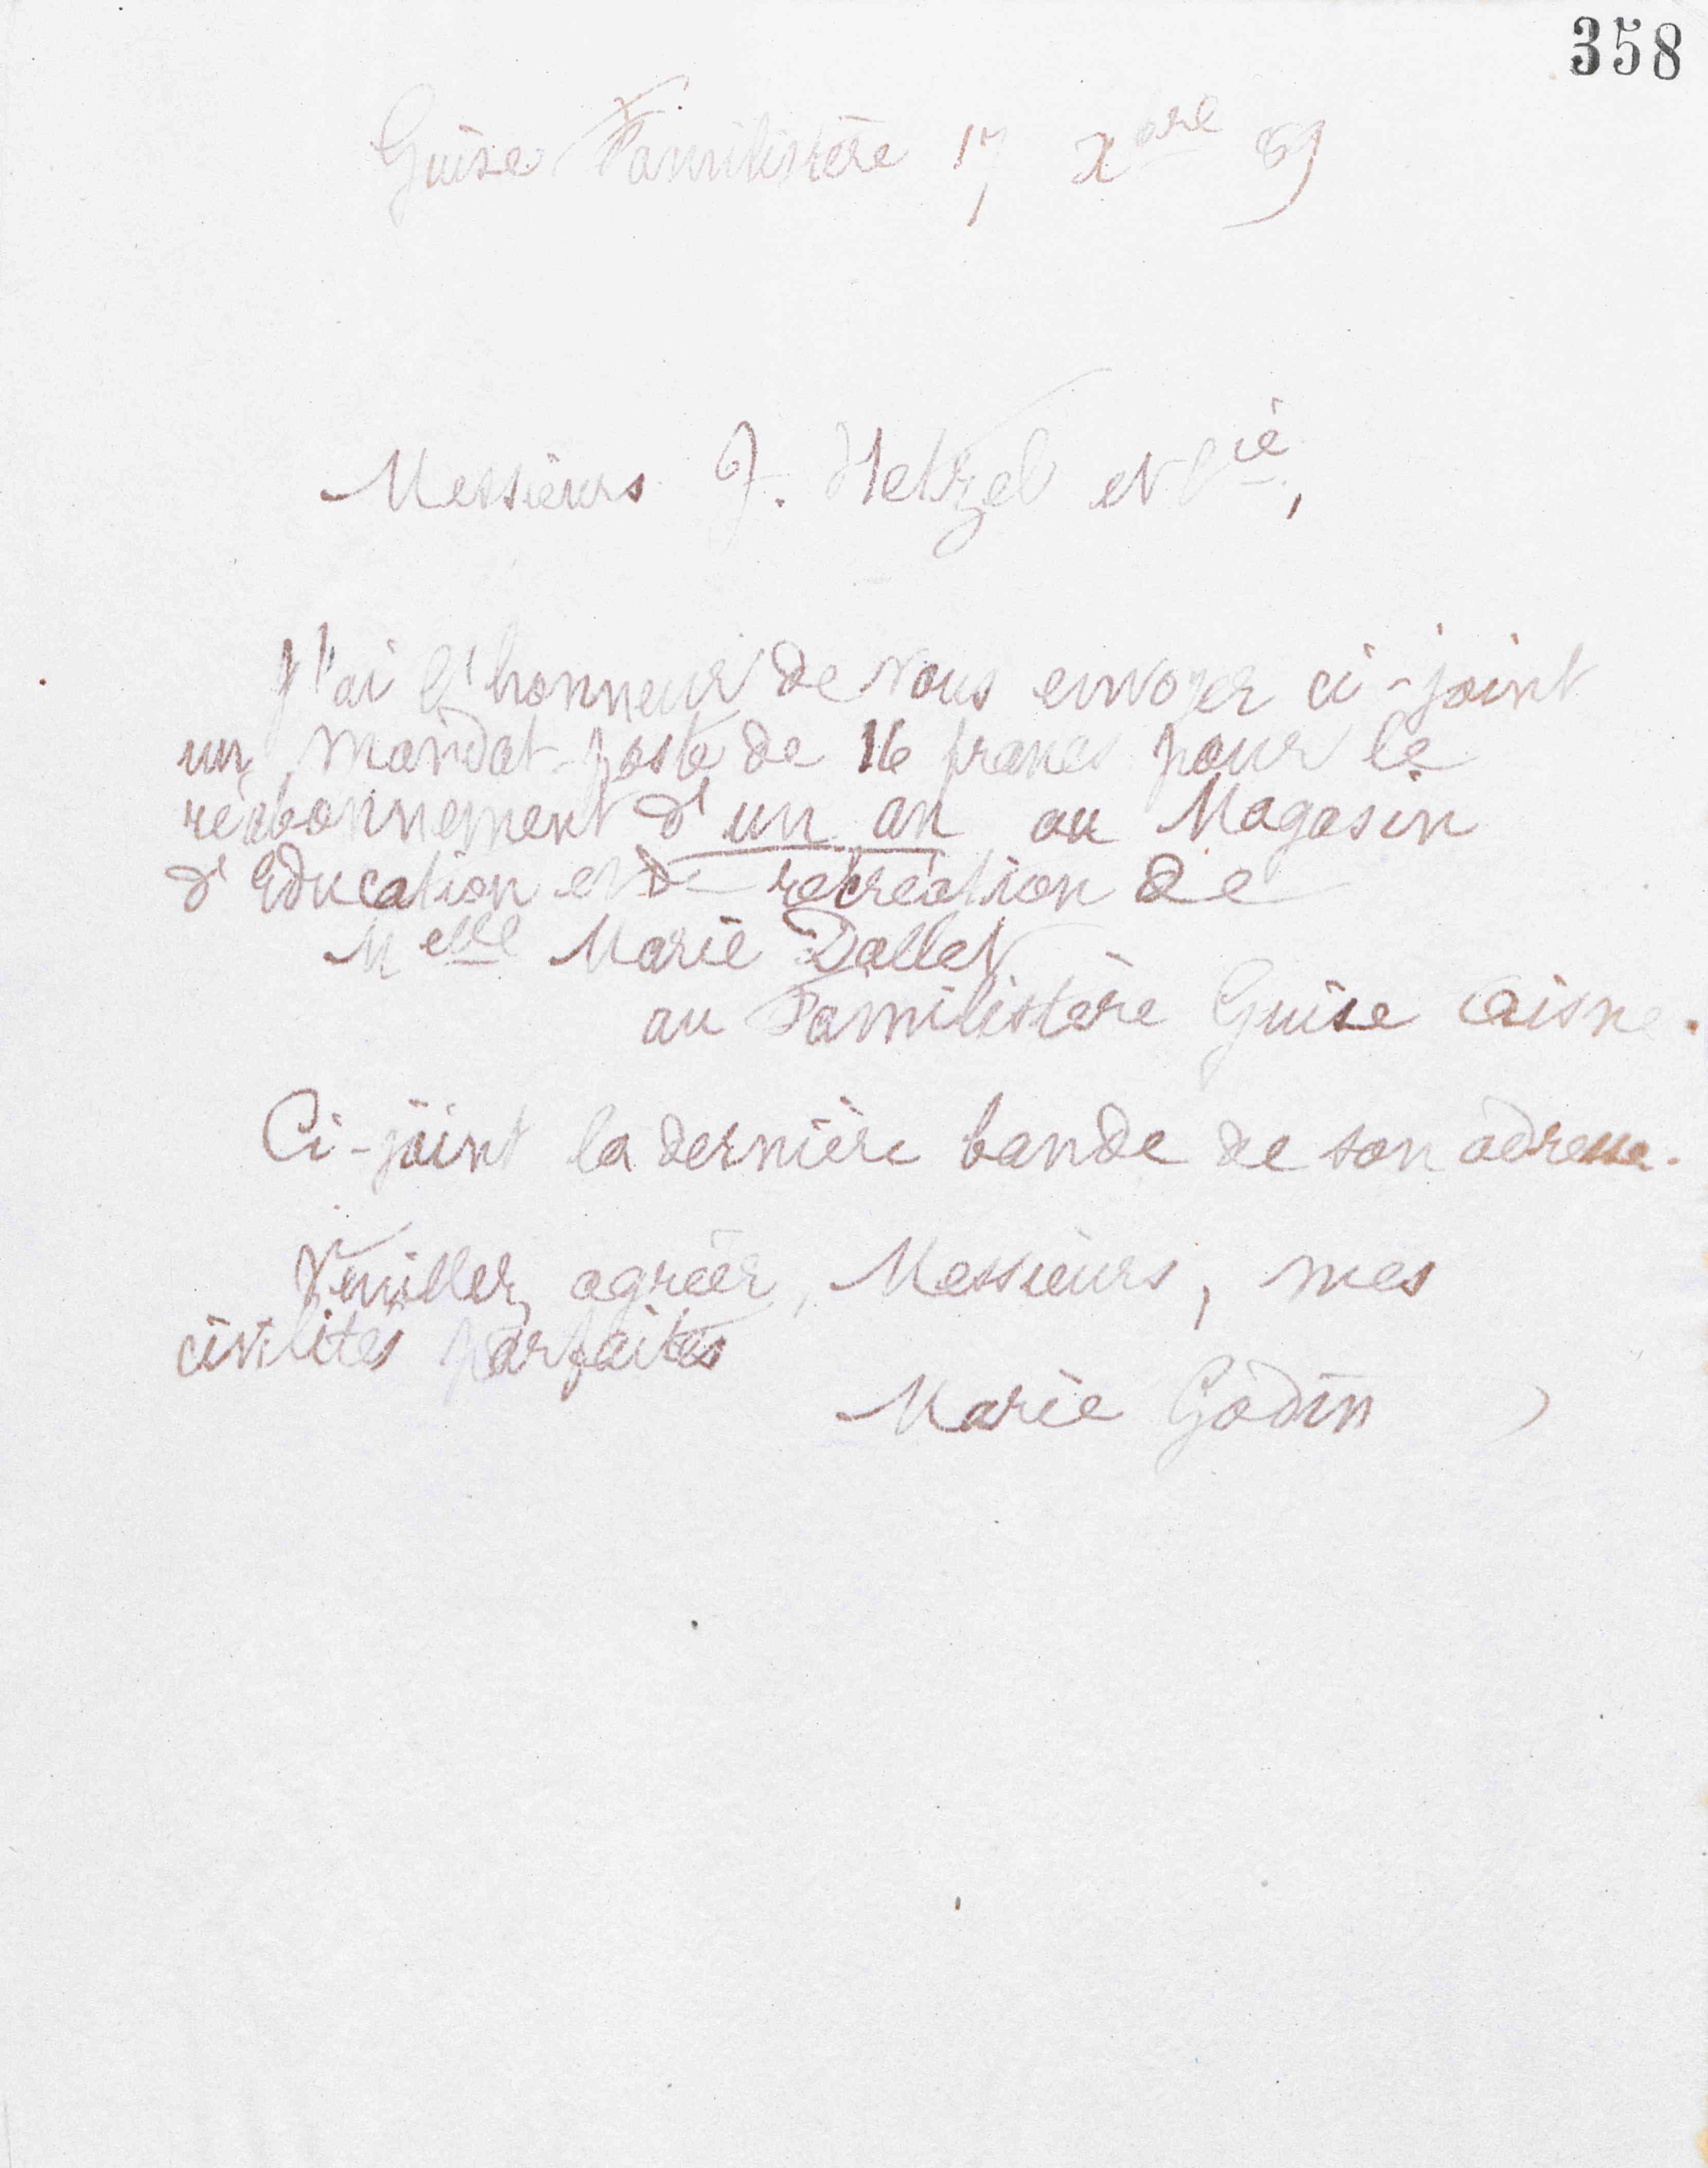 358
Guise Familistère 17 Xbre 89
Messieurs J. Hetzel et Cie,
J'ai l'honneur de vous envoyer ci-joint
un mandat-poste de 16 francs pour le
réabonnement d'un an au Magasin
d'Education et de récréation de
Melle Marie Dallet
au Familistère Guise Aisne.
Ci-joint la dernière bande de son adresse.
Veuillez agréer, Messieurs, mes
civilités parfaites
Marie Godin